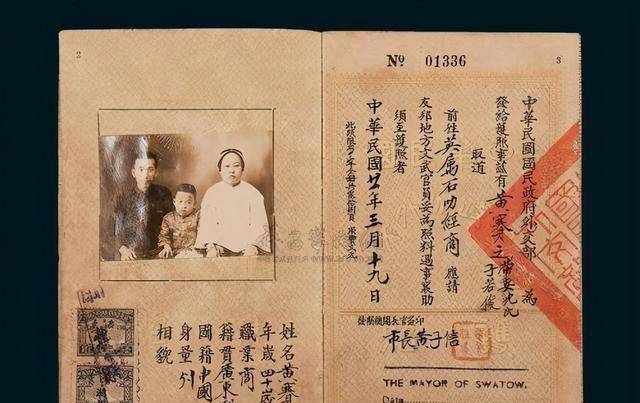 2
姓名黄賽
年歲四十歲
職業商
籍貫廣東
國籍中國
身量
相貌
3
Nº 01336
中華民國國民政府外交部 為
發給護照事茲有黄賽之 帶妻尤氏
子若俊
取道
前往英属石叻經商 應請
友邦地方文武官員妥為照料遇事襄助
須至護照者
中華民國廿年三月十九日
發照機關長官簽印
市長黄子信
THE MAYOR OF SWATOW.
Date